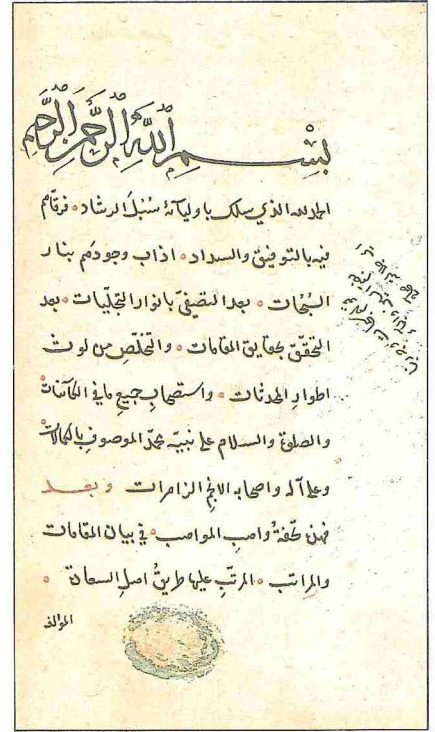 بِسْمِ اللهِ الرَّحْمنِ الرَّحِيمِ
الحمدلله الذي سلك باوليآئه سُبُلَ الرشاد ۰ فرقاهم
فيه بالتوفيق والسداد ۰ اذاب وجودهم بنار
السُبُحات ۰ بعد التصفّي بانوار التجلّيات ۰ بعد
التحقّق بحقايق المقامات ۰ والتخلّصِ من لوث
اطوارِ المحدثات ۰ واستصحابِ جميعِ ما في الكآئنات
والصلوة والسلام على نبيّه محمّد الموصوفِ بالكمالات
وعلى آله واصحابه الانجُمِ الزاهرات وبعد
فهذه تحفةُ واهبِ المواهب ۰ في بيان المقامات
والمراتب ۰ المرتّبِ عليها طريقُ اهلِ السعادة ۰